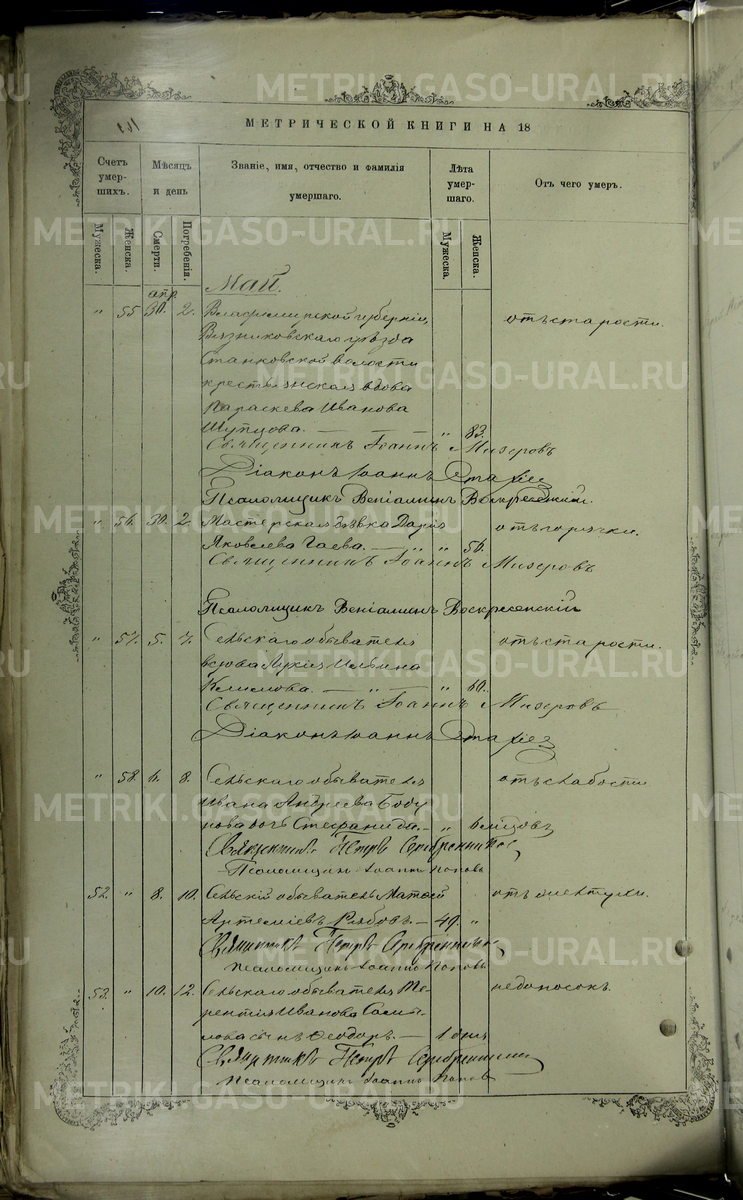 METRIKI.GASO-URAL.RU
МЕТРИЧЕСКОЙ КНИГИ НА 18
Счетъ умер- шихъ.
Мѣсяцъ и день
Званіе, имя, отчество и фамилія умершаго.
Лѣта умер- шаго.
Отъ чего умеръ.
Мужеска.
Женска.
Смерти.
Погребенія.
Мужеска.
Женска.
Май.
апр
" 55 30. 2. Владимирской губерніи, отъ старости.
Вязниковскаго уѣзда
Станковской волости
крестьянская вдова
Параскева Иванова
— " 83.
Священникъ Іоаннъ Мизеровъ
Діаконъ Іоаннъ
Псаломщикъ Веніаминъ Воскресенскій.
" 56. 30. 2. Мастерская дѣвка Дарія отъ горячки.
Яковлева Гаева. — " " 56.
Священникъ Іоаннъ Мизеровъ
Псаломщикъ Веніаминъ Воскресенскій
" 57. 5. 7. Сельскаго обывателя отъ старости.
вдова Лукія Ильина
— " — " 60.
Священникъ Іоаннъ Мизеровъ
Діаконъ Іоаннъ
" 58. 6. 8. Сельскаго обывателя отъ слабости.
Ивана Андреева Бобу
нова дочь Стефанида. — " 6 мѣсцовъ
Священникъ Петръ Серебренниковъ
Псаломщикъ Іоаннъ Поповъ
52. " 8. 10. Сельскій обыватель Матѳей отъ
Артеміевъ Рябовъ. — 49. "
Священникъ Петръ Серебренниковъ
Псаломщикъ Іоаннъ Поповъ
53. " 10. 12. Сельскаго обывателя Те- недоносокъ.
рентія Иванова
сынъ Ѳеодоръ. — 1 дня
Священникъ Петръ Серебренниковъ
Псаломщикъ Іоаннъ Поповъ